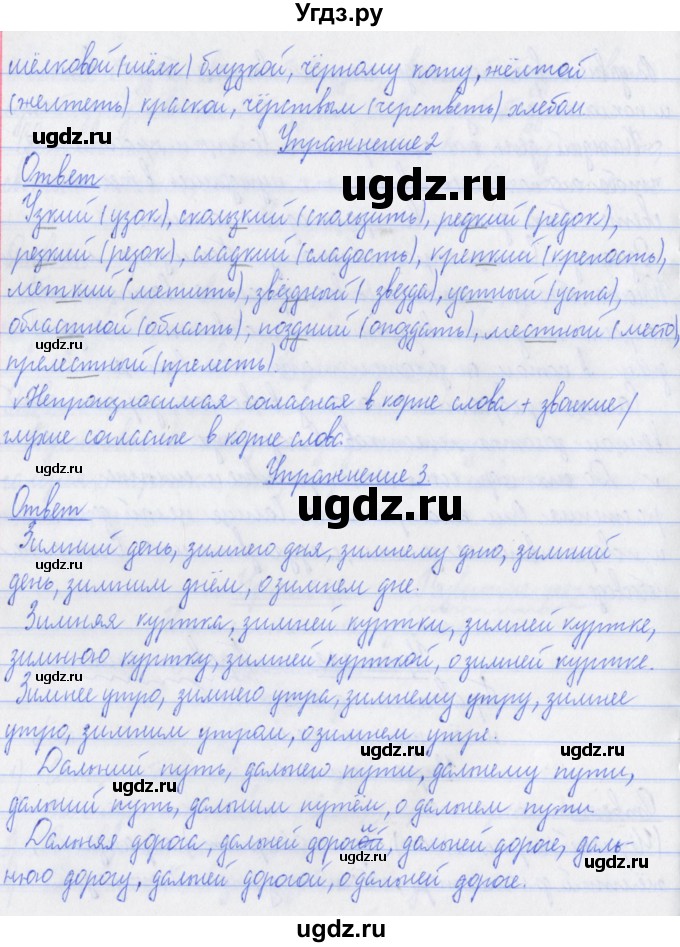 Угдз.ру
шёлковой (шёлк) блузкой, чёрному коту, жёлтой
(желтеть) краской, чёрствым (черстветь) хлебом
ugdz.ru
ugdz.ru
Упражнение 2
Ответ
ugdz.ru
Узкий (узок), скользкий (скользить), редкий (редок),
резкий (резок), сладкий (сладость), крепкий (крепость),
ugdz.ru
меткий (метить), звёздный (звезда), устный (уста),
областной (область), поздний (опоздать), местный (место),
ugdz.ru
ugdz.ru
прелестный (прелесть).
Непроизносимая согласная в корне слова + звонкие/
глухие согласные в корне слова.
ugdz.ru
Упражнение 3
ugdz.ru
Ответ
Зимний день, зимнего дня, зимнему дню, зимний
день, зимним днём, о зимнем дне.
Зимняя куртка, зимней куртки, зимней куртке,
зимнюю куртку, зимней курткой, о зимней куртке.
Зимнее утро, зимнего утра, зимнему утру, зимнее
утро, зимним утром, о зимнем утре.
ugdz.ru
ugdz.ru
Дальний путь, дальнего пути, дальнему пути,
дальний путь, дальним путём, о дальнем пути.
Дальняя дорога, дальней дороги, дальней дороге, даль-
ugdz.ru
нюю дорогу, дальней дорогой, о дальней дороге.
ugdz.ru
ugdz.ru